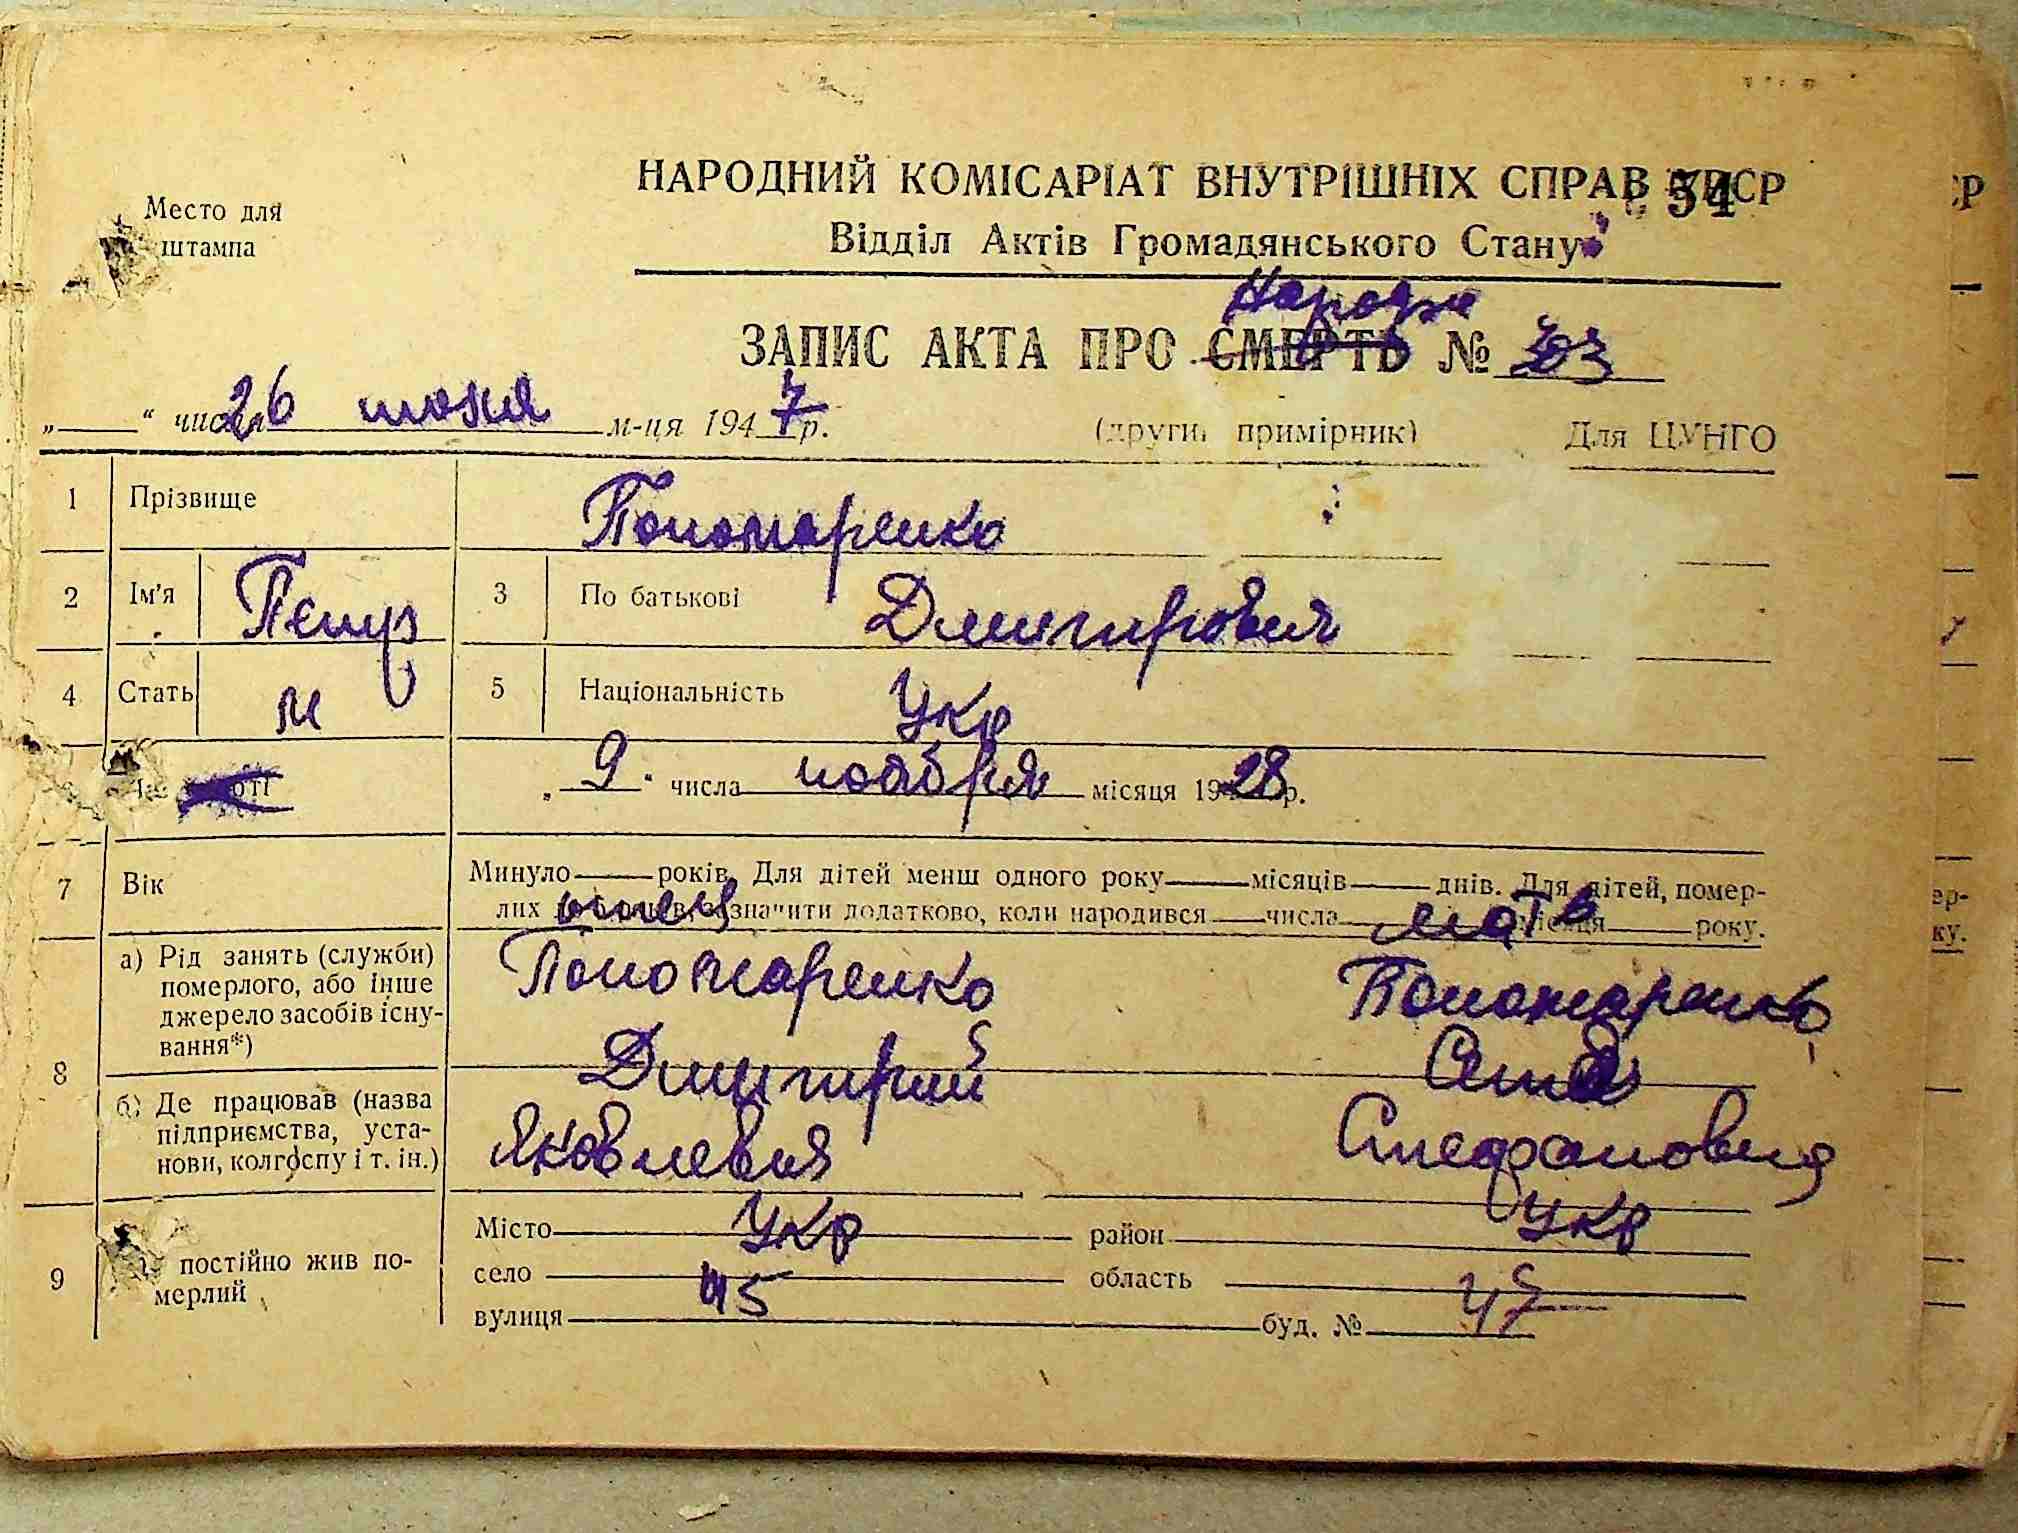 НАРОДНИЙ КОМІСАРІАТ ВНУТРІШНІХ СПРАВ УРСР 54
Место для штампа
Відділ Актів Громадянського Стану
Народж
ЗАПИС АКТА ПРО СМЕРТЬ № 303
„ “ числа 26 июня м-ця 1947 р. (другий примірник) Для ЦУНГО
1 Прізвище Пономаренко
2 Ім'я Петр 3 По батькові Дмитрович
4 Стать м 5 Національність Укр
„ 9 числа ноября місяця 1928 р.
7 Вік Минуло років. Для дітей менш одного року місяців днів. Для дітей, помер-
лих отец зазначити додатково, коли народився числа мать місяця року.
8 а) Рід занять (служби) померлого, або інше джерело засобів існування*) Пономаренко Пономаренко
Дмитрий
б) Де працював (назва підприємства, установи, колгоспу і т. ін.) Яковлевич Стефановна
9 постійно жив померлий Місто Укр район Укр
село 45 область 47
вулиця буд. №